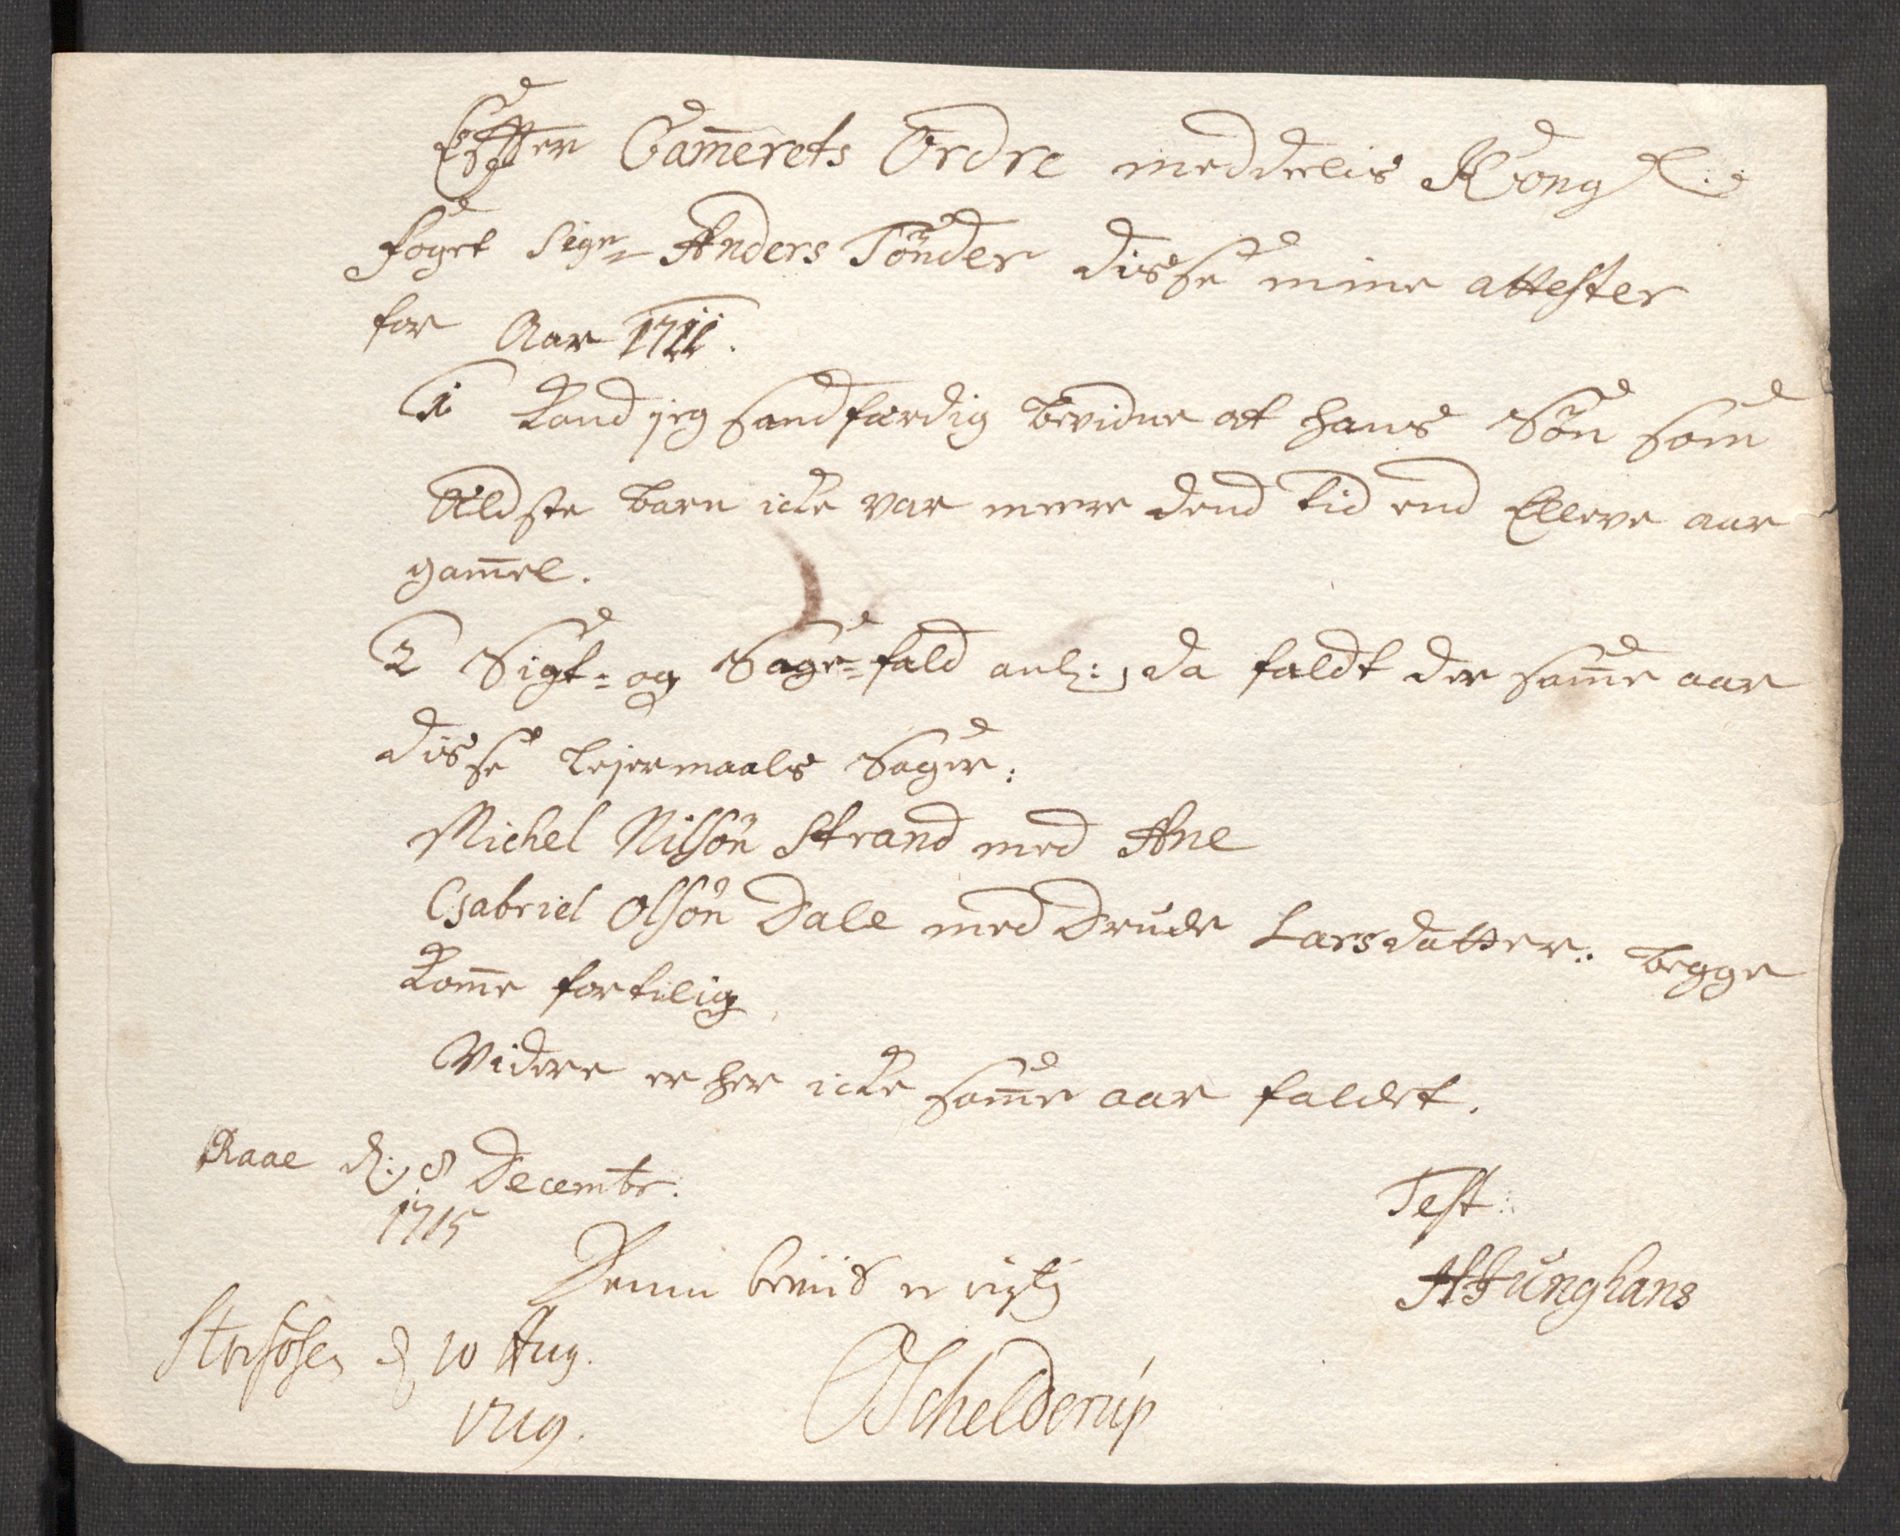 Effter Cam̄erets Ordre meddelis Kongl:
foget Sigr Anders Tönder disse mine attester
for Aar 1711.
1 Kand jeg sandfærdig bevidne at hans Sön som
Ældste barn icke var meere dend tid end Elleve aar
gam̄el.
2 Sigt- og Sage-fald anl: da faldt der sam̄e aar
disse Lejermaals Sager:
Michel Nilsön Strand med Ane
Gabriel Olsön Dale med Drude Larsdatter: begge
Kom̄e fortilig
Videre er her icke sam̄e aar faldet.
Raae d: 8 Decembr:
1715
Test:
HJunghans
Denne beviis er rigtig
d 10 Aug.
1719.
OSchelderup